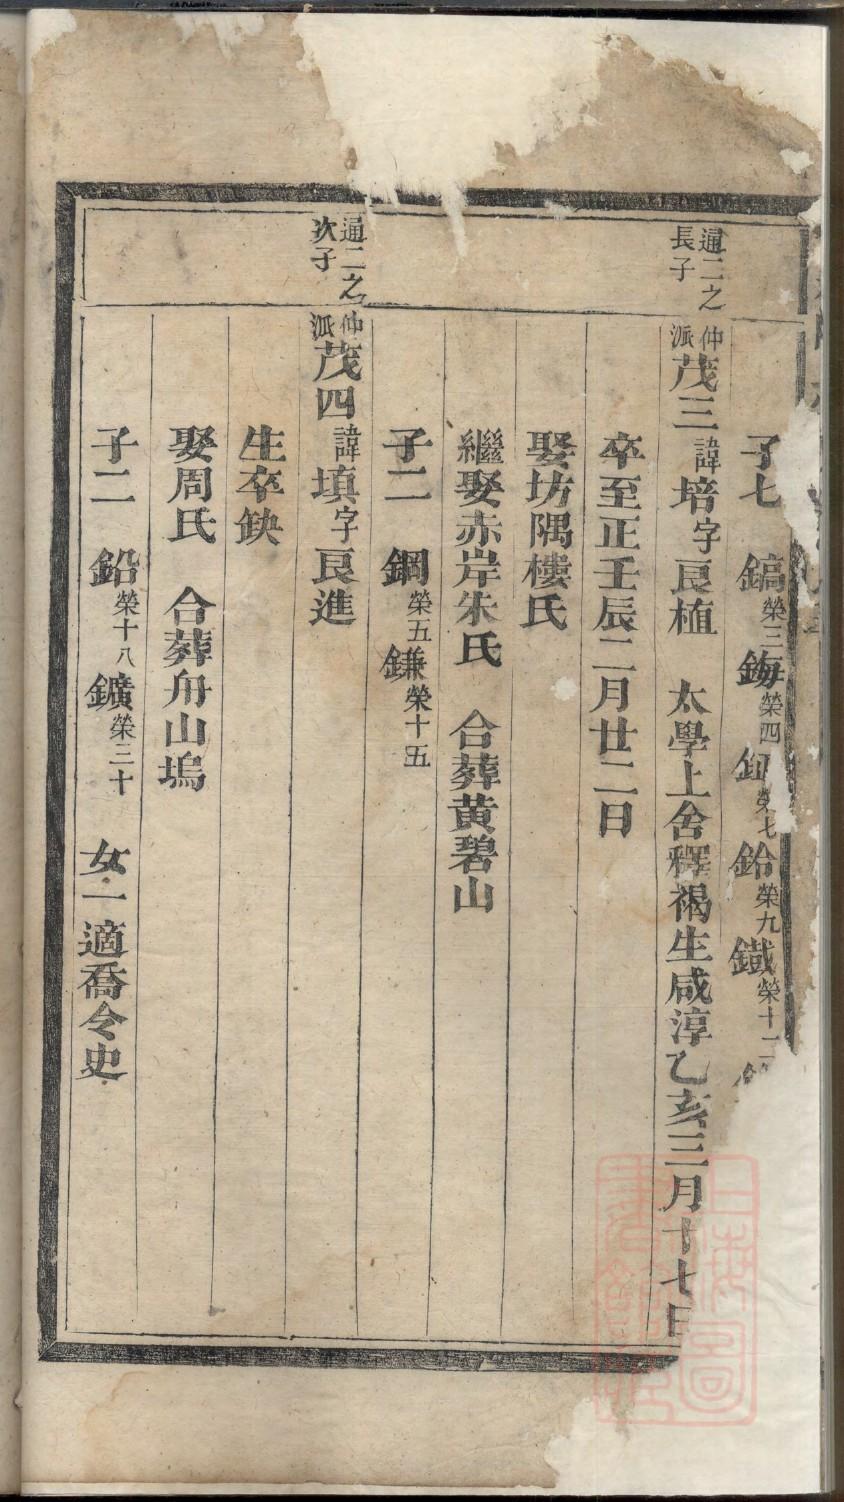 子七 鎬榮三 鋂榮四 鉦榮七 鉿榮九 鐵榮十二
通二之長子
仲派茂三 諱培字良植 太學上舍釋褐生咸淳乙亥三月十七日
卒至正壬辰二月廿二日
娶坊隅樓氏
繼娶赤岸朱氏 合葬黃碧山
子二 鋼榮五 鎌榮十五
通二之次子
仲派茂四 諱填字良進
生卒缺
娶周氏 合葬舟山塢
子二 鉛榮十八 鑛榮三十 女一適喬令史
上海圖書館藏